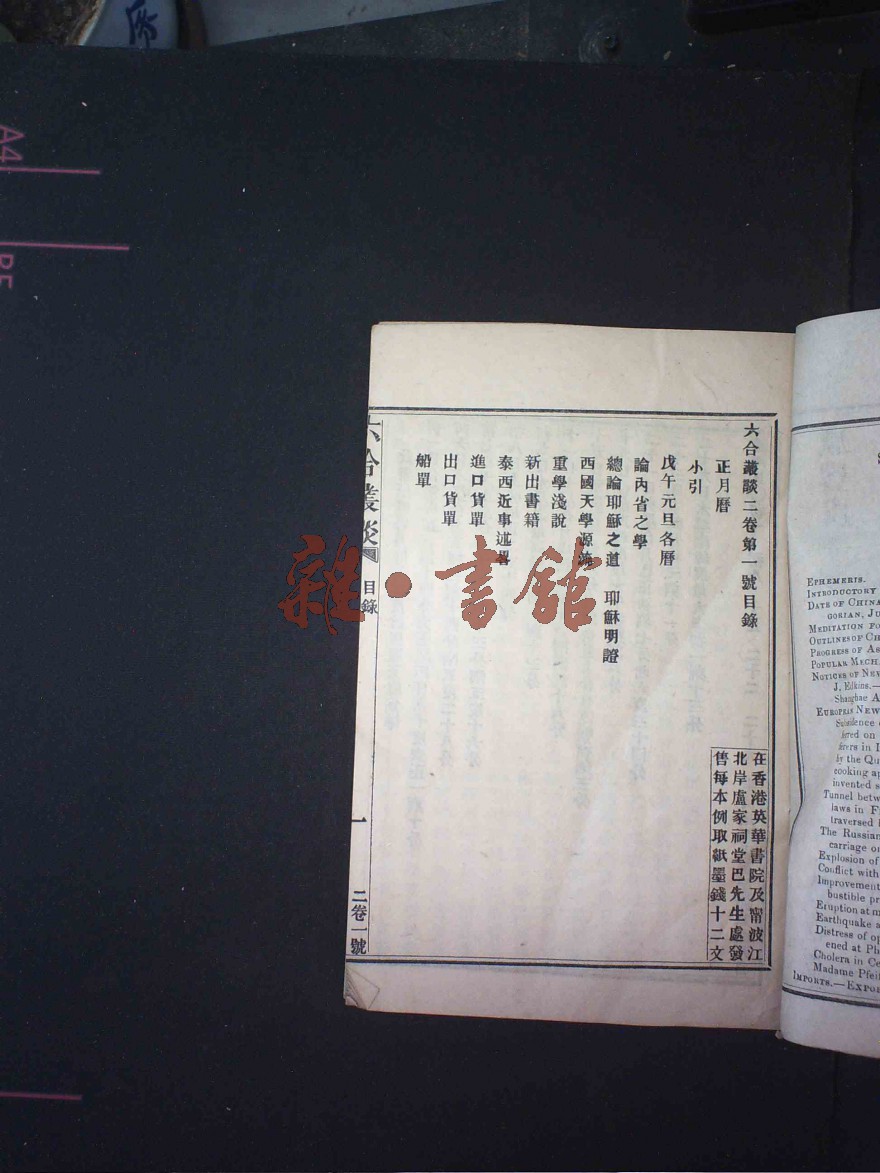 六合叢談二卷第一號目錄
正月曆
小引
戊午元旦各曆
論內省之學
總論耶穌之道 耶穌明證
西國天學源流
重學淺說
新出書籍
泰西近事述畧
進口貨單
出口貨單
船單
在香港英華書院及甯波江
北岸盧家祠堂巴先生處發
售每本例取紙墨錢十二文
六合叢談 目錄 一 二卷一號
雜·書館
EPHEMERIS.
INTRODUCTORY
DATE OF CHINA
GORIAN, JU
MEDITATION FO
OUTLINES OF CH
PROGRESS OF AS
POPULAR MECH
NOTICES OF NEW
J. Edkins.—
Shanghae A
EUROPEAN NEW
ered on
ferers in I
by the Qu
cooking ap
invented s
Tunnel betw
laws in F
traversed
The Russian
carriage on
Explosion of
Conflict with
Improvement
bustible pr
Eruption at m
Earthquake a
Distress of op
ened at Ph
Cholera in Ce
Madame Pfeif
IMPORTS.—EXPOR
A4
B5